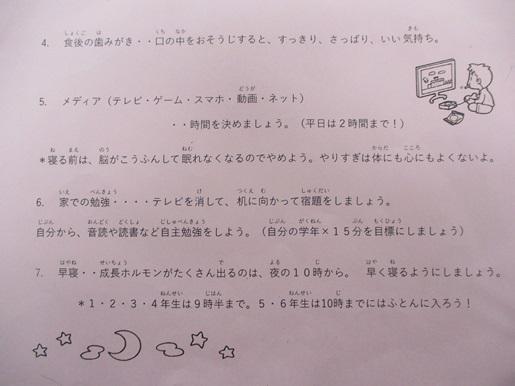 4. 食後の歯みがき・・口の中をおそうじすると、すっきり、さっぱり、いい気持ち。
5. メディア（テレビ・ゲーム・スマホ・動画・ネット）
・・時間を決めましょう。（平日は２時間まで！）
＊寝る前は、脳がこうふんして眠れなくなるのでやめよう。やりすぎは体にも心にもよくないよ。
6. 家での勉強・・・・テレビを消して、机に向かって宿題をしましょう。
自分から、音読や読書など自主勉強をしよう。（自分の学年×１５分を目標にしましょう）
7. 早寝・・成長ホルモンがたくさん出るのは、夜の１０時から。 早く寝るようにしましょう。
＊１・２・３・４年生は９時半まで。５・６年生は10時までにはふとんに入ろう！